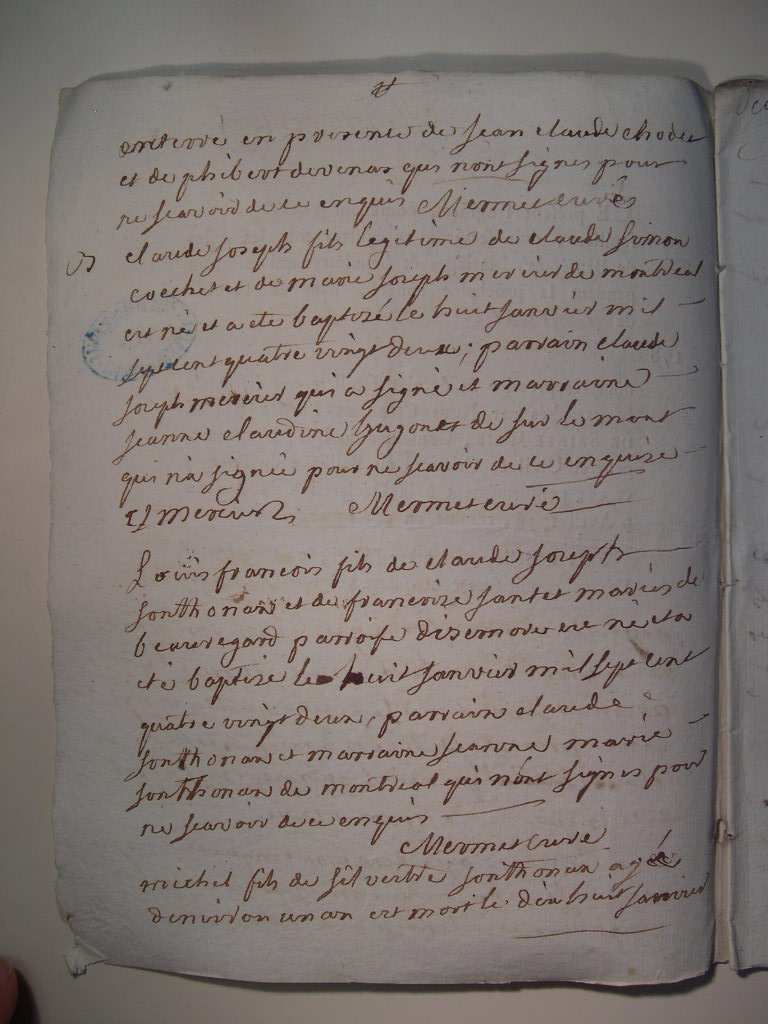 enterré en presence de jean claude chodet
et de phibert devenas qui n'ont signés pour
ne scavoir de ce enquis Mermet curé
claude joseph fils legitime de claude simon
cochet et de marie joseph mercier de montreal
est né et a eté baptizé le huit janvier mil
sept cent quatre vingt deux; parrain claude
joseph mercier qui a signé et marraine
jeanne claudine hugonet de sur le mont
qui n'a signée pour ne scavoir de ce enquize
CJ mercier Mermet curé
Louis francois fils de claude joseph
sonthonax et de francoise jantet mariés de
beauregard parroisse disernore est né et a
eté baptize le huit janvier mil sept cent
quatre vingt deux, parrain claude
sonthonax et marraine jeanne marie
sonthonax de montreal qui n'ont signes pour
ne scavoir de ce enquis
Mermet curé
michel fils de silvestre sonthonax agé
denviron un an est mort le dix huit janvier